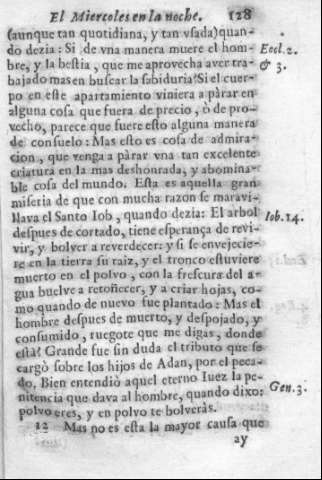 El Miercoles en la noche. 128
(aunque tan quotidiana, y tan vsada) quan-
do dezia: Si de vna manera muere el hom- Eccl. 2.
bre, y la bestia, que me aprovecha aver tra- & 3.
bajado mas en buscar la sabiduria? Si el cuer-
po en este apartamiento viniera a pàrar en
alguna cosa que fuera de precio, ò de pro-
vecho, parece que fuere esto alguna manera
de consuelo: Mas esto es cosa de admira-
cion, que venga a pàrar vna tan excelente
criatura en la mas deshonrada, y abomina-
ble cosa del mundo. Esta es aquella gran
miseria de que con mucha razon se maravi-
llava el Santo Iob, quando dezia: El arbol Iob. 14.
despues de cortado, tiene esperança de revi-
vir, y bolver a reverdecer: y si se envejecie-
re en la tierra su raiz, y el tronco estuviere
muerto en el polvo, con la frescura del a-
gua buelve a retoñecer, y a criar hojas, co-
mo quando de nuevo fue plantado: Mas el
hombre despues de muerto, y despojado, y
consumido, ruegote que me digas, donde
està? Grande fue sin duda el tributo que se
cargò sobre los hijos de Adan, por el peca-
do. Bien entendiò aquel eterno Iuez la pe-
nitencia que dava al hombre, quando dixo: Gen. 3.
polvo eres, y en polvo te bolveràs.
12 Mas no es esta la mayor causa que
ay